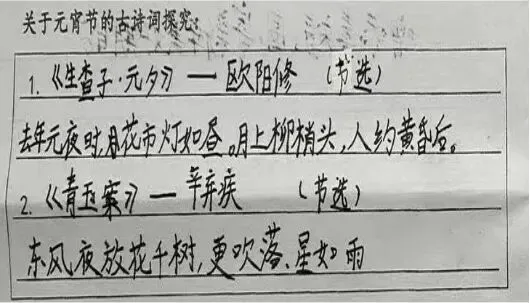 关于元宵节的古诗词探究:
1.《生查子·元夕》— 欧阳修 (节选)
去年元夜时,月花市灯如昼。月上柳梢头,人约黄昏后。
2.《青玉案》— 辛弃疾 (节选)
东风夜放花千树,更吹落、星如雨